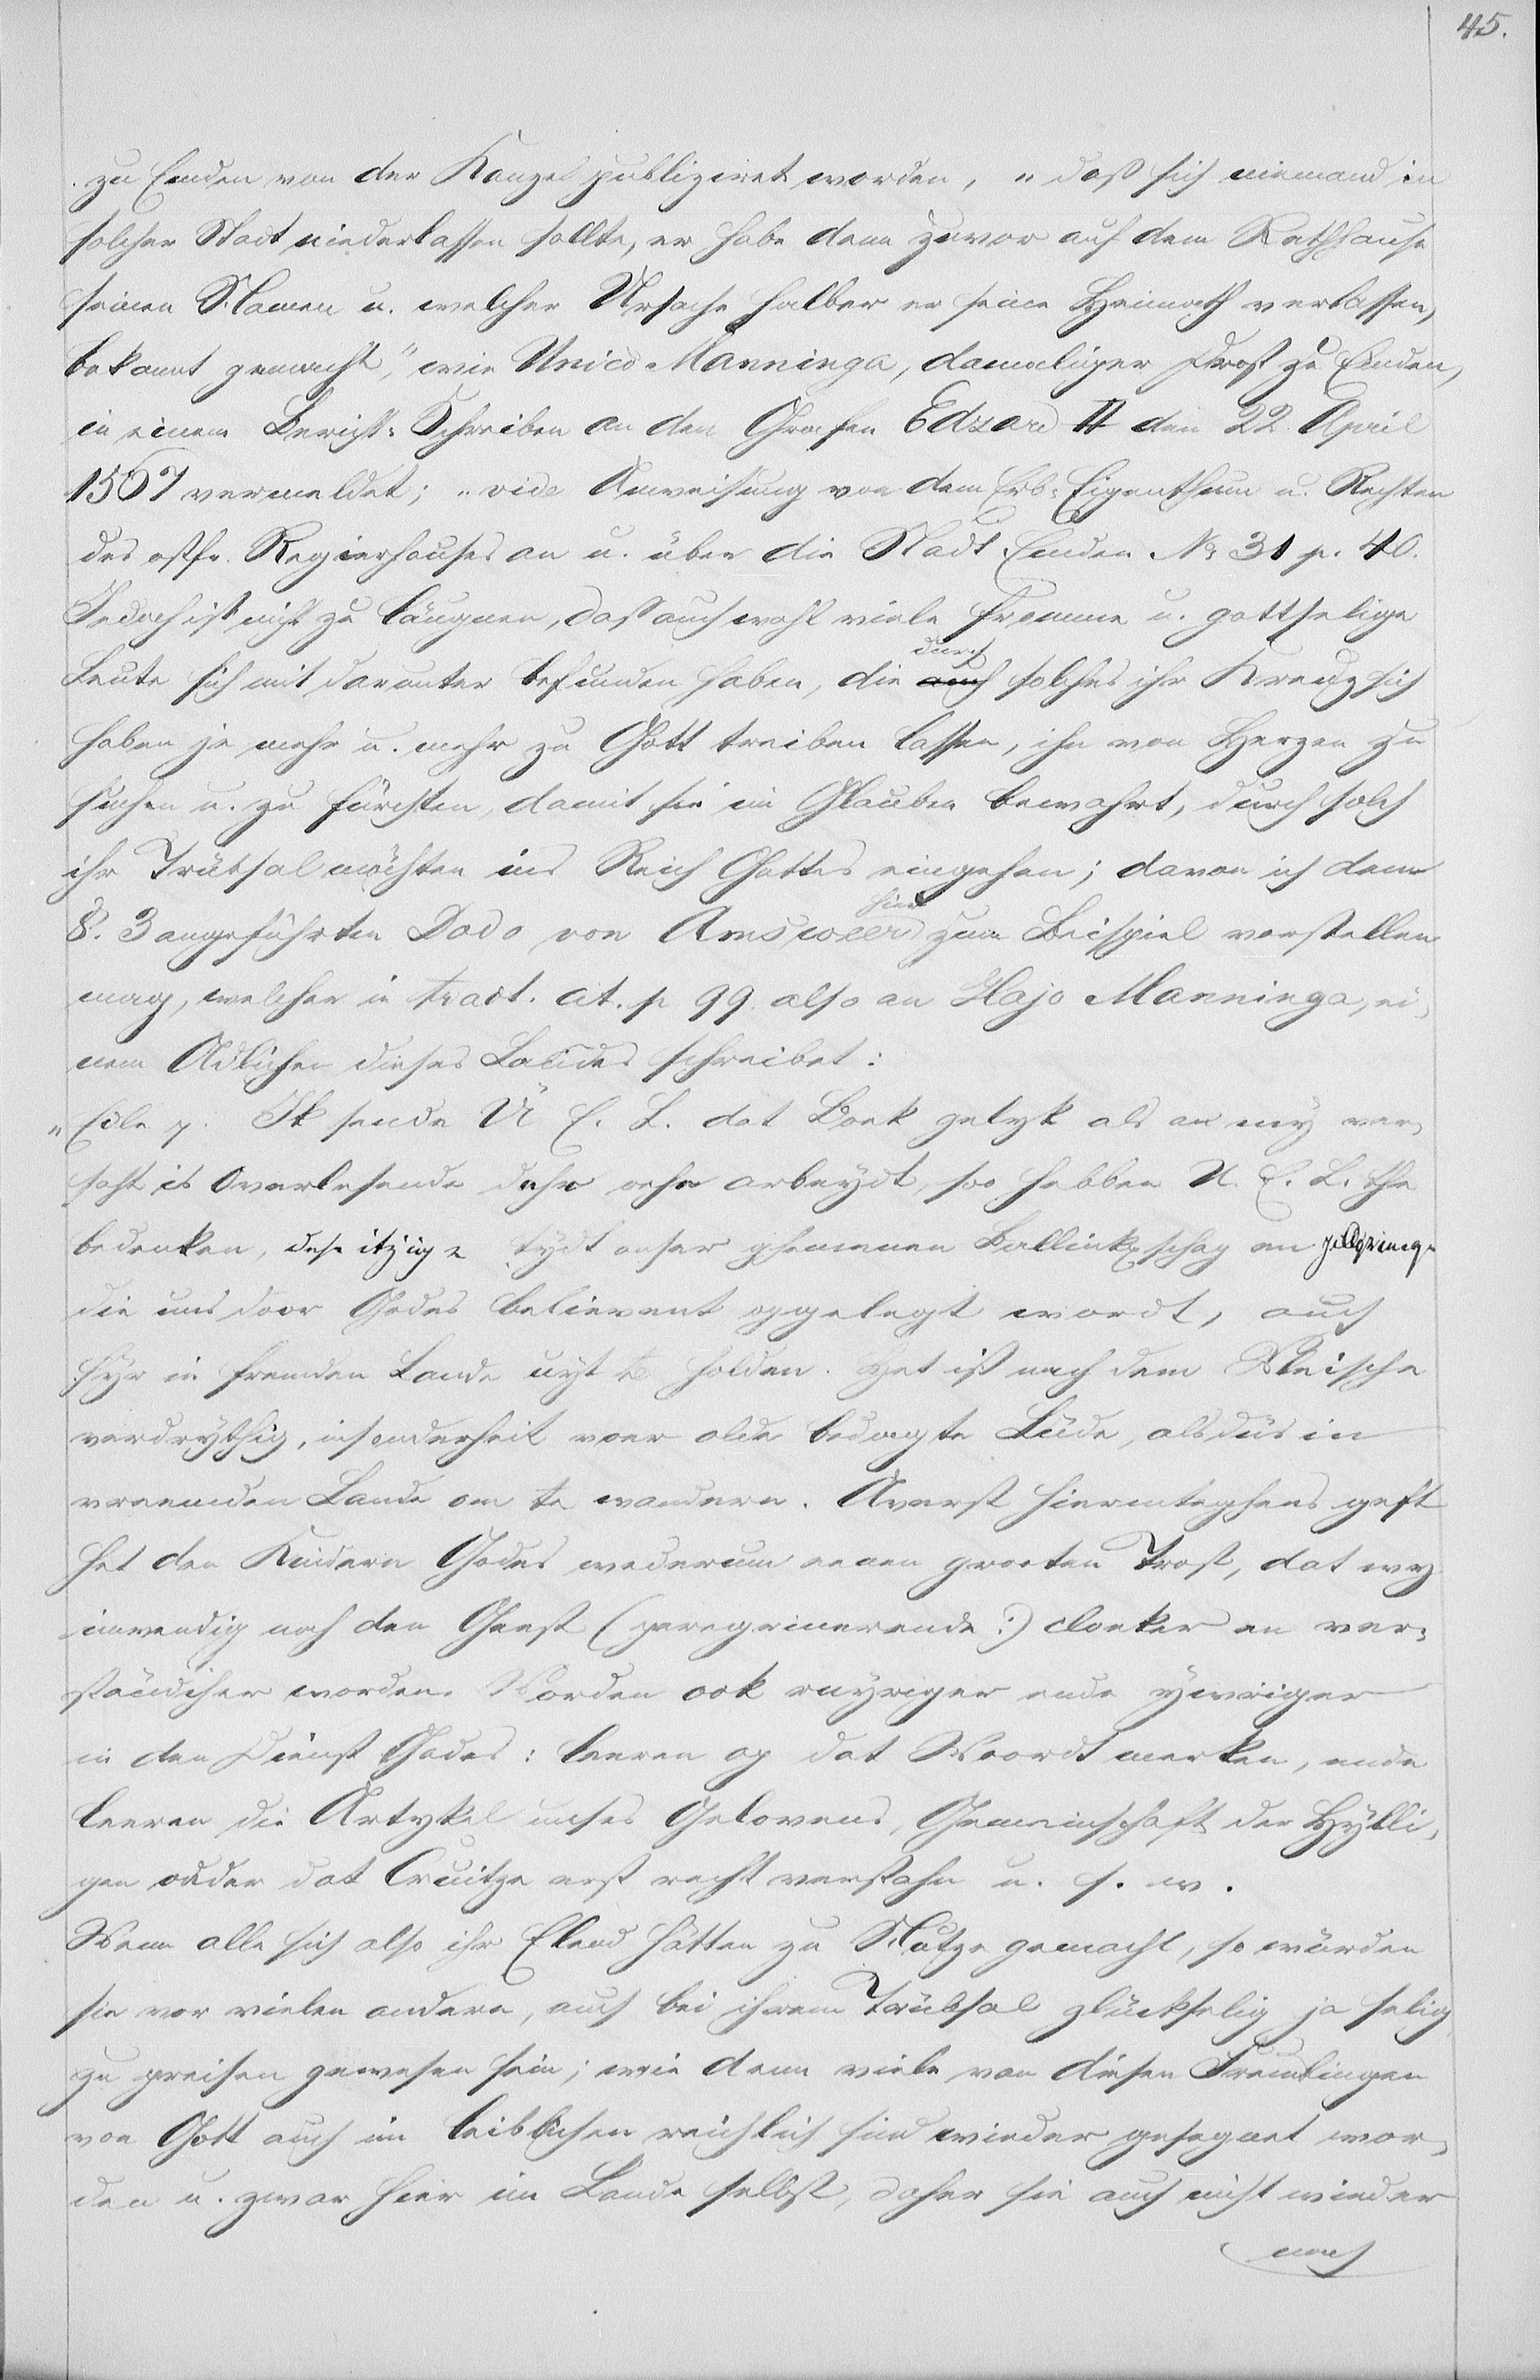 45.
zu Emden von der Kanzel publiziret worden, „daß sich niemand in
solcher Stadt niederlassen sollte, er habe denn zuvor auf dem Rathhause
seinen Namen u. welcher Ursache halber er seine Heimath verlassen,
bekannt gemacht“, wie Unico Manninga, damaliger Drost zu Emden,
in einem Bericht-Schreiben an den Grafen Edzard II den 22 April
1567 vermeldet; „vide Anweisung von dem Erb-Eigenthum u. Rechten
des ostfr. Regierhauses an u. über die Stadt Emden No 31 p. 40.
Jedoch ist nicht zu läugnen, daß auch wohl viele fromme u. gottselige
Leute sich mit darunter befunden haben, die durch solches ihr Kreuz sich
haben je mehr u. mehr zu Gott treiben lassen, ihn von Herzen zu
suchen u. zu fürchten, damit sie im Glauben bewahrt, durch solch
ihr Trübsal möchten ins Reich Gottes eingehen; davon ich denn
§. 3 angeführten Dodo von Amsweer hier zum Beispiel vorstellen
mag, welcher in tract. cit. p 99 also an Hajo Manninga, ei-
nem Adlichen dieses Landes schreibet:
„Edle p. Ik sende U E. L. dat Boek gelyk als an my ver-
soht is overlesende dahr oehr arbeydt, soo hebben U. E. L. the
bedenken, dese itzige tydt onser ghemenen Ballinkschap en pillgrimage
die uns door Godes believent opgelegt wordt, auch
hyr in fremden Lande uyt to holden. Het ist nach dem Vleische
verdrythig, insonderheit voer olde bedagte Lüde, aldüs in
vreemden Lande om te wandern. Averst hiermteghens geft
het den Kindern Godes wederum eenen grooten Trost, dat wy
inwendig nah den Geest (peregrinerende:) cloeker en ver-
ständiher worden. Worden ook vuyriger ende yvriger
in den Dienst Godes: leeren op dat Woordt merken, ende
leeren die Artykel unses Gelovens, Gemeinschaft der Hylli-
gen onder dat Cruitze erst recht verstahn u. s. w.
Wenn alle sich also ihr Elend hätten zu Nutze gemacht, so würden
sie vor vielen andern, auch bei ihrem Trübsal glückselig ja selig
zu preisen gewesen sein; wie denn viele von diesen Fremdlingen
von Gott auch im leiblichen reichlich sind wieder gesegnet wor-
den u. zwar hier im Lande selbst, daher sie auch nicht wieder
nach